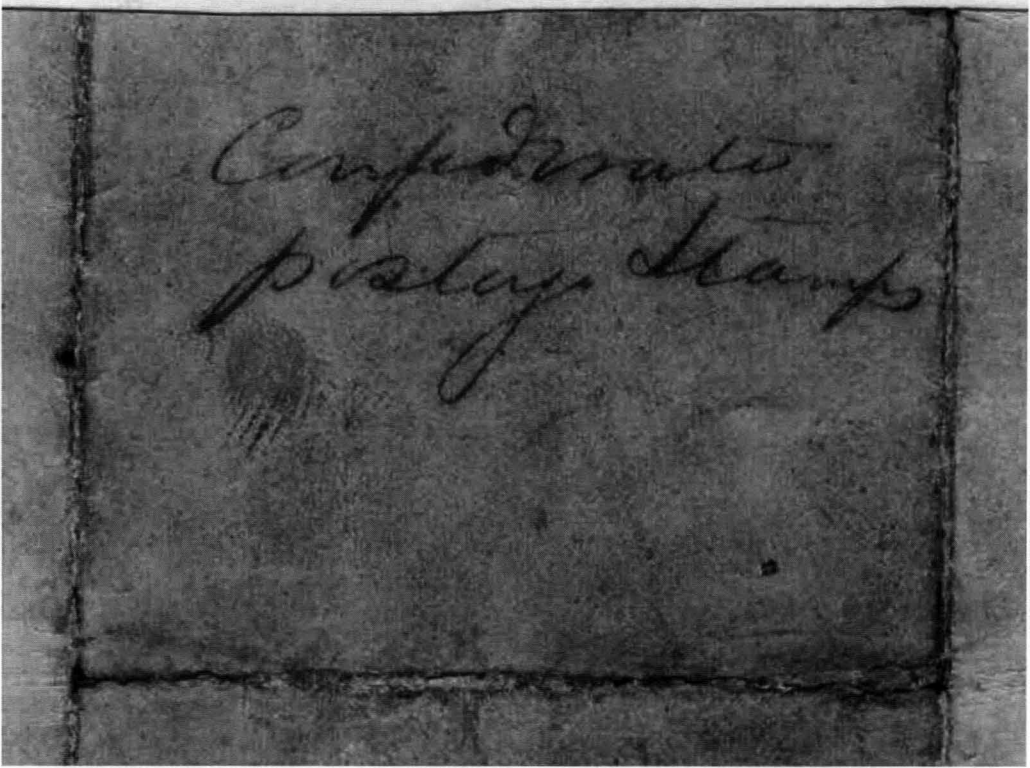 Confederate
postage Stamps